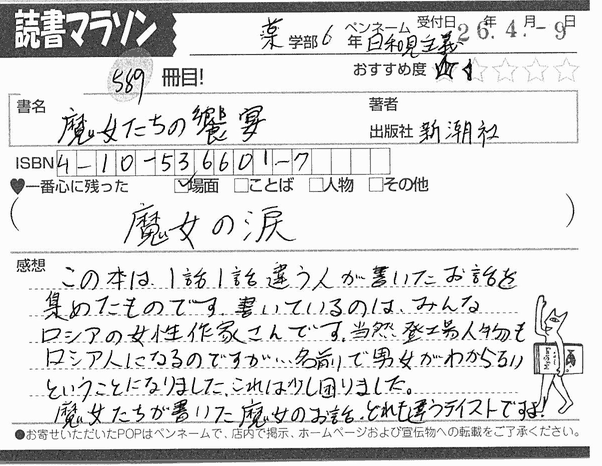 読書マラソン
薬 学部 6 年 ペンネーム 日和見主義 受付日 26.年4.月-9日
589 冊目! おすすめ度 ★☆☆☆☆
書名 魔女たちの饗宴 著者
出版社 新潮社
ISBN 4-10-536601-7
♥一番心に残った ☑場面 □ことば □人物 □その他
(魔女の涙)
感想 この本は、1話1話違う人が書いたお話を
集めたものです。書いているのは、みんな
ロシアの女性作家さんです。当然、登場人物も
ロシア人になるのですが…、名前で男女がわからない
ということになりました、これは少し困りました。
魔女たちが書いた魔女のお話、どれも違うテイストですよ!
●お寄せいただいたPOPはペンネームで、店内で掲示、ホームページおよび宣伝物への転載をご了承ください。